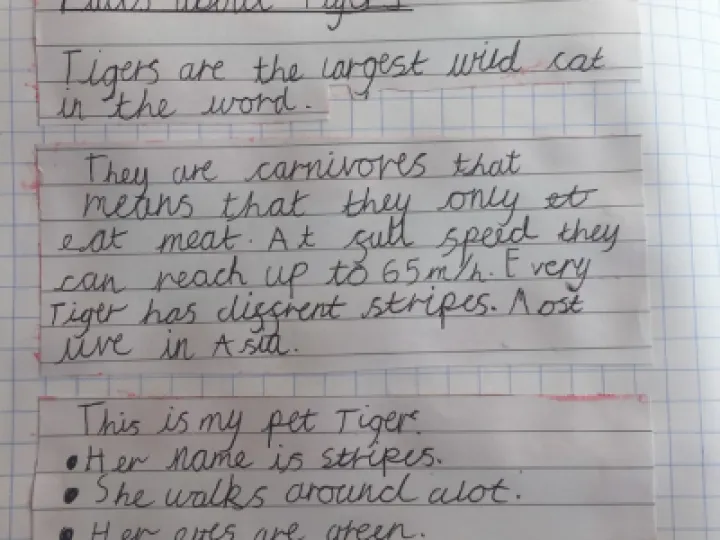 Facts about Tigers
Tigers are the largest wild cat
in the word.
They are carnivores that
means that they only et
eat meat. At full speed they
can reach up to 65m/h. Every
Tiger has diffrent stripes. Most
live in Asia.
This is my pet Tiger.
• Her name is stripes.
• She walks around alot.
• Her eyes are green.